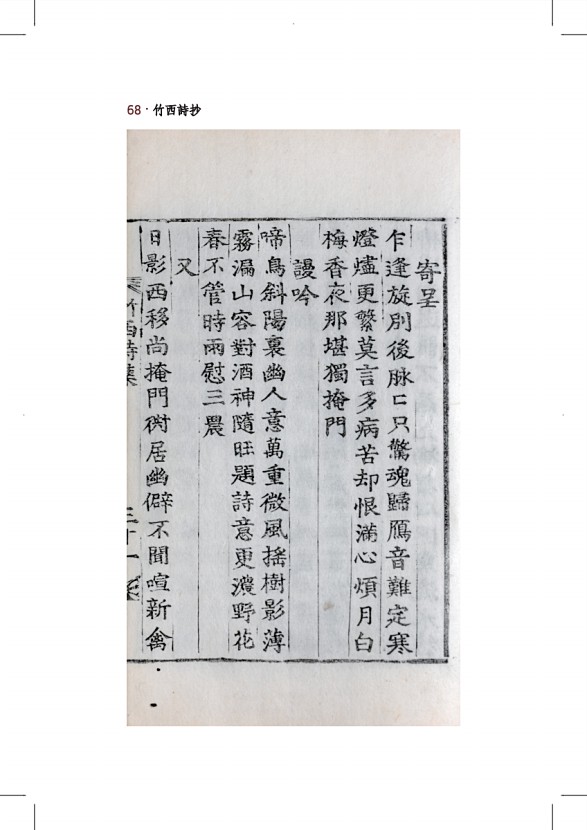 68 · 竹西詩抄
寄呈
乍逢旋別後脉亡只驚魂歸鴈音難定寒
燈燼更繁莫言多病苦却恨滿心煩月白
梅香夜那堪獨掩門
謾吟
啼鳥斜陽裏幽人意萬重微風搖樹影薄
霧漏山容對酒神隨旺題詩意更濃野花
春不管時雨慰三農
又
日影西移尚掩門 居幽僻不聞喧新禽
竹西詩集
三十一